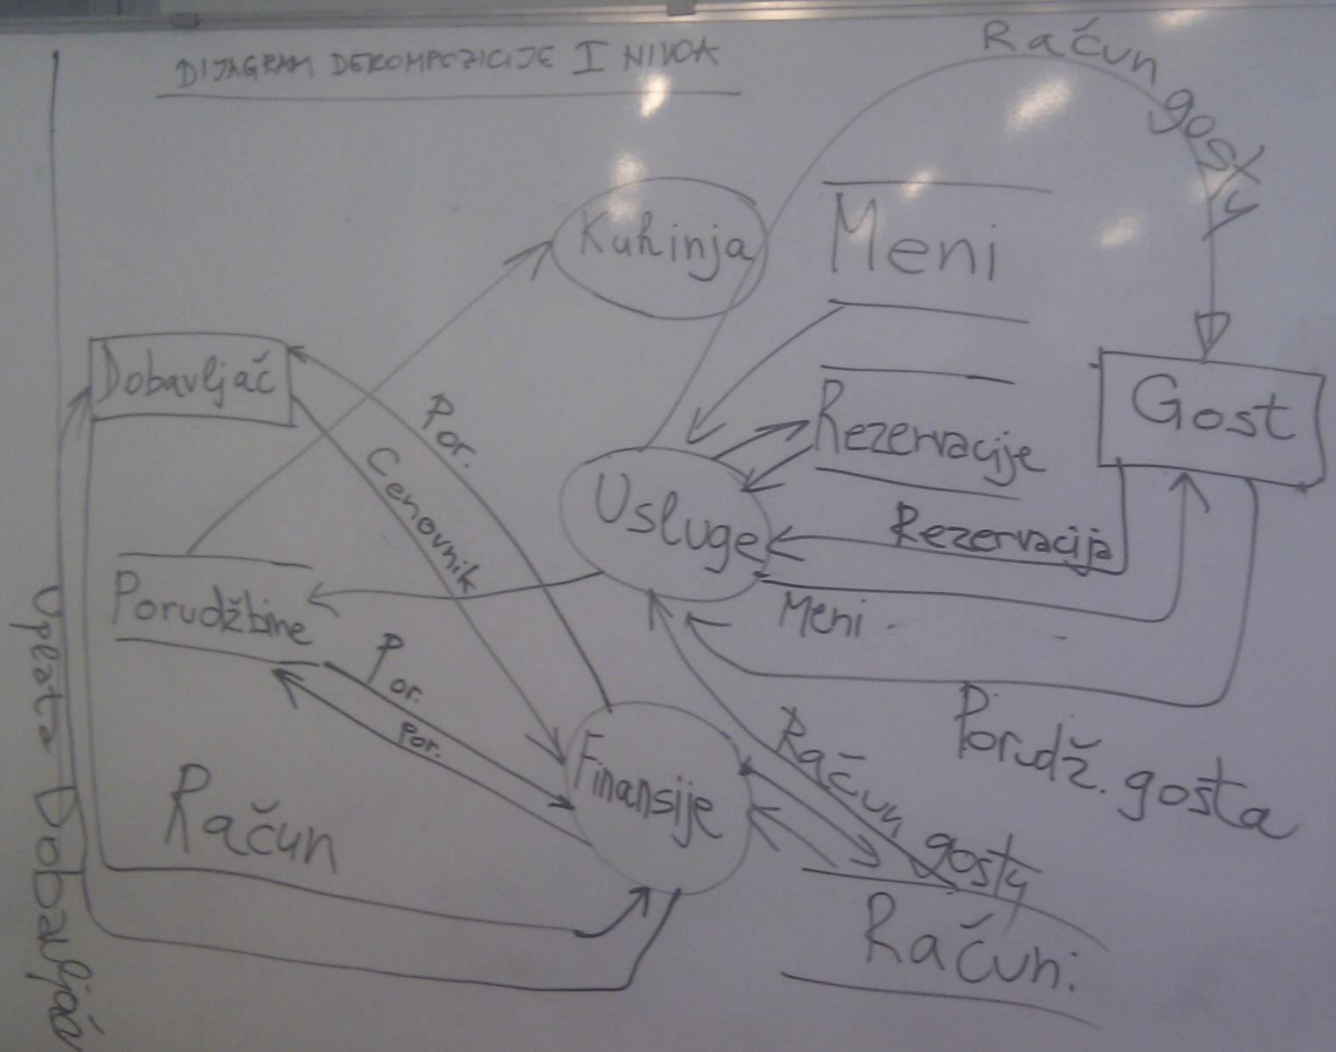 DIJAGRAM DEKOMPOZICIJE I NIVOA
Račun gostu
Kuhinja
Meni
Dobavljač
Por.
Cenovnik
Rezervacije
Gost
Usluge
Rezervacija
Meni
Porudžbine
Por.
Por.
Porudž. gosta
Finansije
Račun gostu
Račun
Računi
Uplata Dobavljač